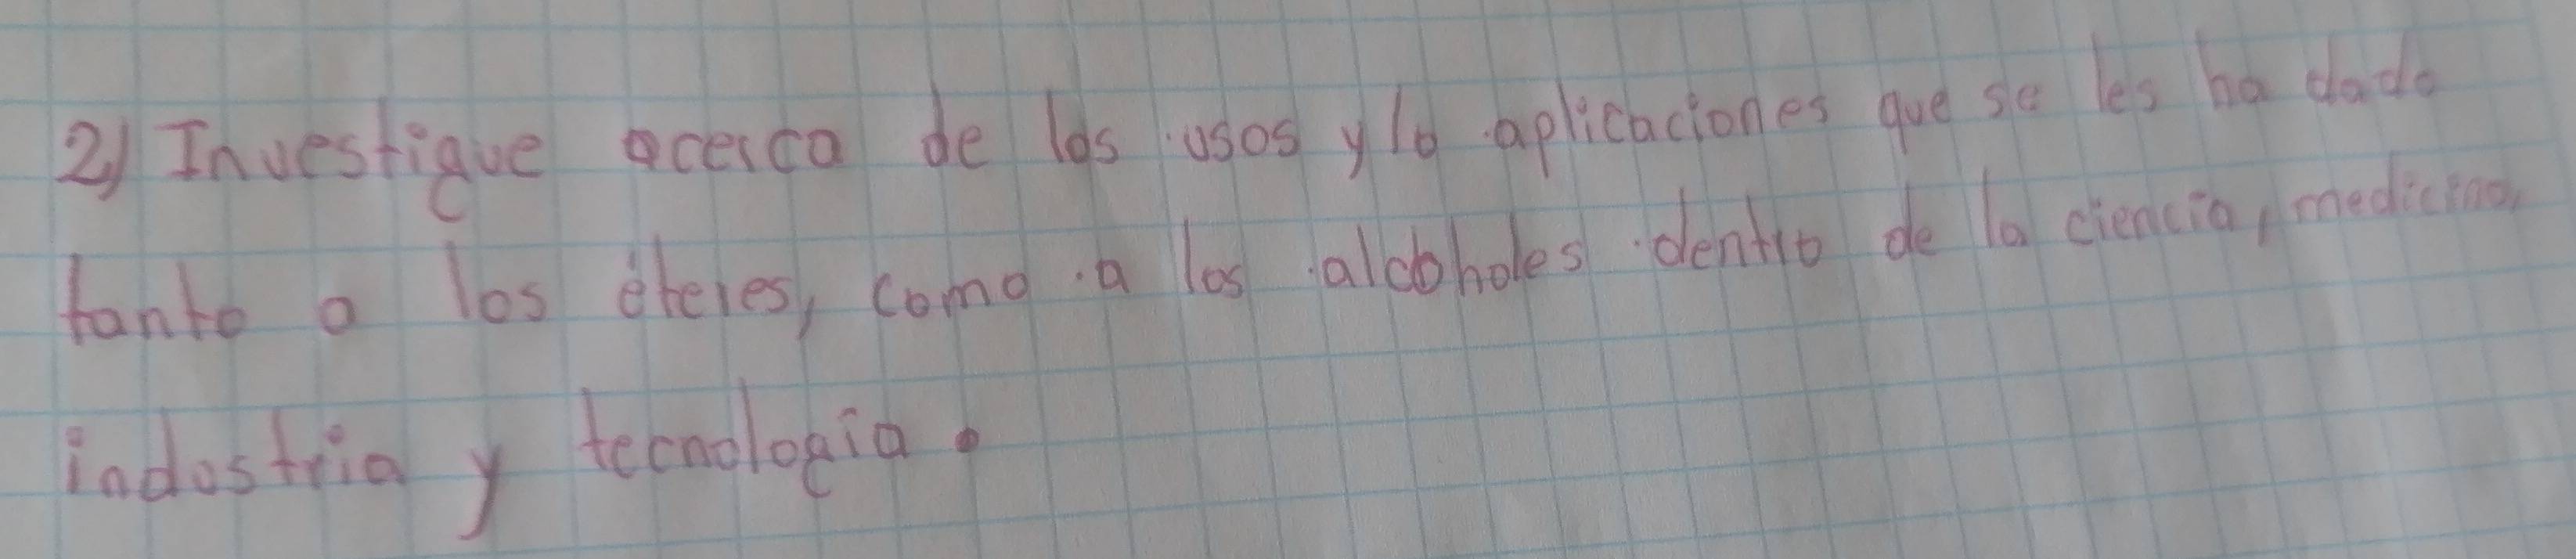 2) Investigue acerca de los usos y lo aplicaciones que se les ha dado
tanto a los éteres, como a los alcoholes dentro de la ciencia, medicina,
industria y tecnologia.